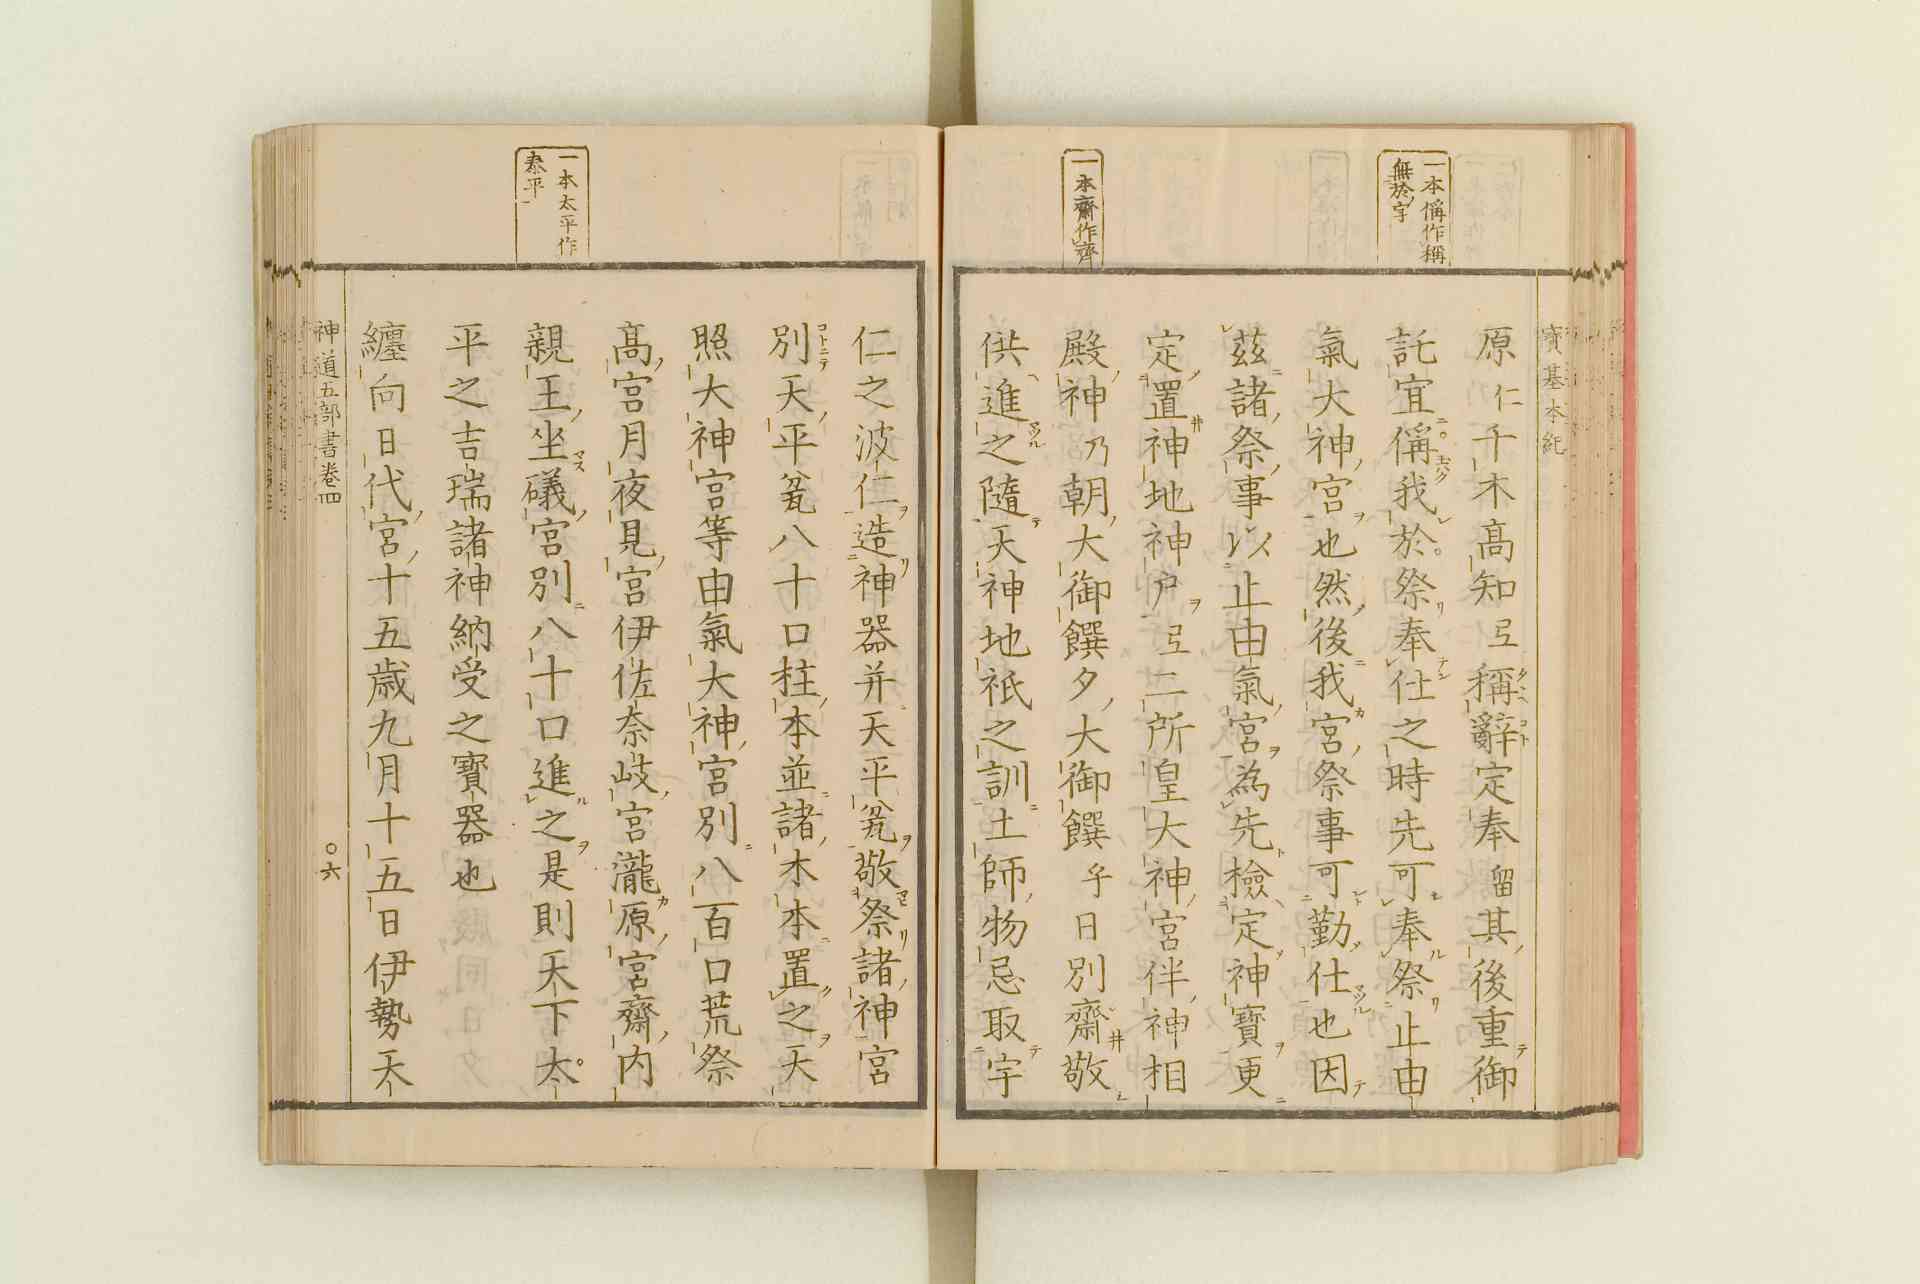 一本偁作稱
無於字
一本齋作齊
寶基本紀
原仁千木高知弖稱辭定奉留其後重御
託宜偁我於祭奉仕之時先可奉祭止由
氣大神宮也然後我宮祭事可勤仕也因
茲諸祭事以止由氣宮為先檢定神寶更
定置神地神戶弖二所皇大神宮伴神相
殿神乃朝大御饌夕大御饌乎日別齋敬
供進之隨天神地祇之訓土師物忌取宇
一本太平作
泰平
仁之波仁造神器并天平瓫敬祭諸神宮
別天平瓫八十口柱本並諸木本置之天
照大神宮等由氣大神宮別八百口荒祭
高宮月夜見宮伊佐奈岐宮瀧原宮齋內
親王坐礒宮別八十口進之是則天下太
平之吉瑞諸神納受之寶器也
纏向日代宮十五歲九月十五日伊勢天
神道五部書卷四
○六